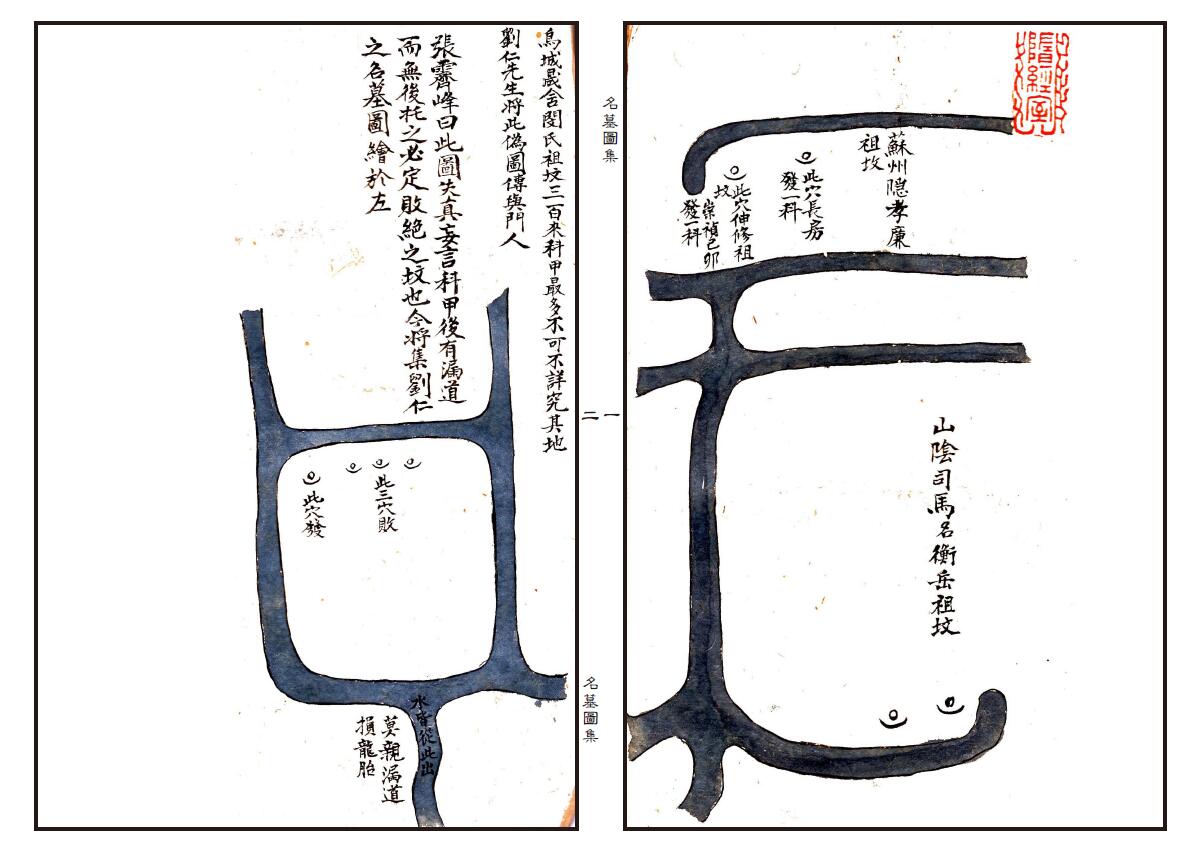 蘇州隱孝廉
祖坟
此穴長房
發一科
此穴伸修祖
坟
崇禎己卯
發一科
山陰司馬名衡岳祖坟
名墓圖集
一
二
名墓圖集
烏城晟舍閔氏祖坟三百來科甲最多不可不詳究其地
劉仁先生將此偽圖傳與門人
張霽峰曰此圖失真妄言科甲後有漏道
而無後托之必定敗絕之坟也今將集劉仁
之名墓圖繪於左
此三穴敗
此穴發
水皆從此出
莫親漏道
損龍胎